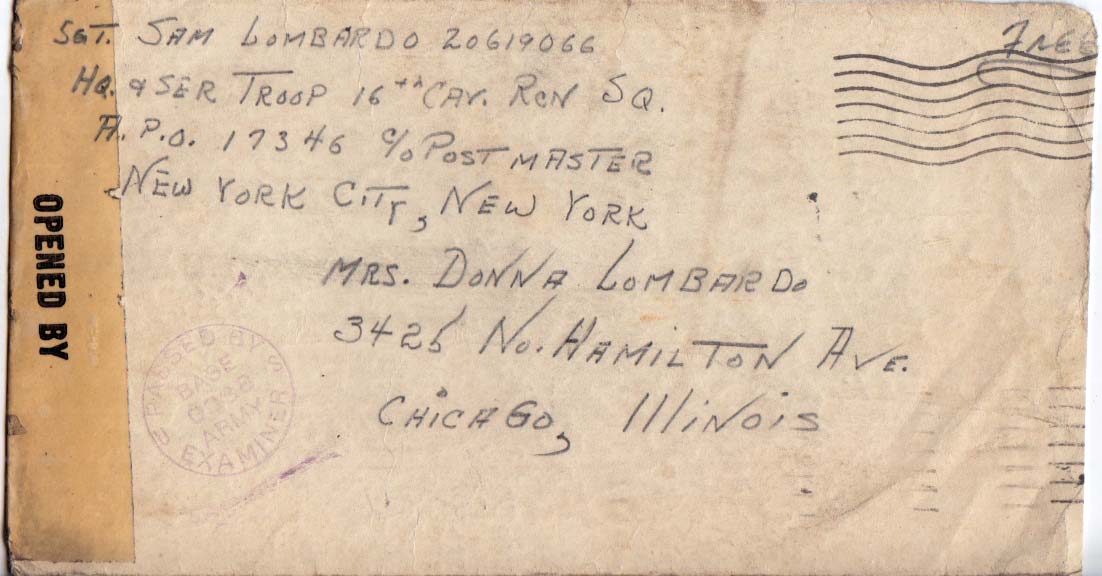 SGT. SAM LOMBARDO 20619066
FREE
HQ. & SER TROOP 16th CAV. RCN SQ.
A.P.O. 17346 c/o POSTMASTER
NEW YORK CITY, NEW YORK
OPENED BY
MRS. DONNA LOMBARDO
3425 NO. HAMILTON AVE.
CHICAGO, ILLINOIS
PASSED BY
BASE
ARMY
EXAMINER